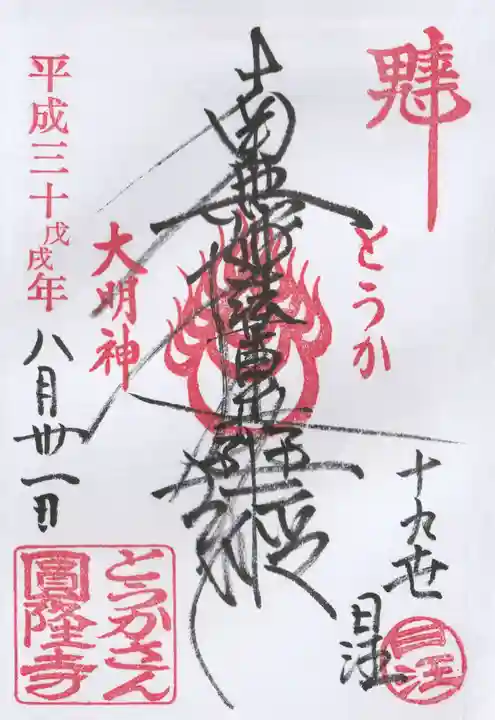 とうか
南無妙法蓮華経
大明神
平成三十戊戌年
八月卅一日
十九世
日注
とうかさん
圓隆寺